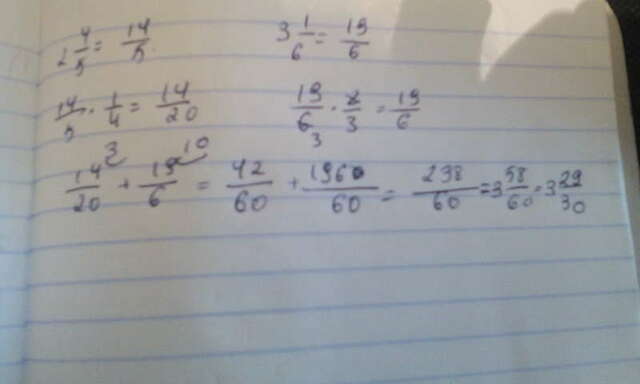 2 4/5 = 14/5 3 1/6 = 19/6
14/5 · 1/4 = 14/20 19/6 3 · 2/3 = 19/6
14/20 3 + 19/6 10 = 42/60 + 1960/60 = 238/60 = 3 58/60 = 3 29/30